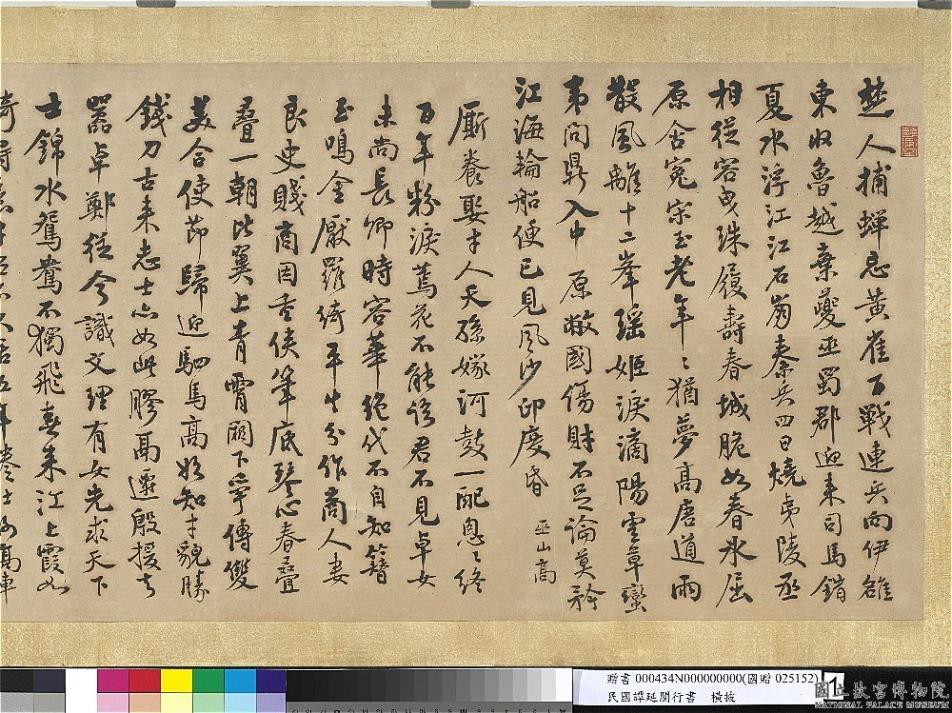 楚人捕蟬忘黃雀百戰連兵向伊雒
東收魯越棄夔巫蜀郡迎來司馬錯
夏水浮江江石崩秦兵四日燒夷陵丞
相從容曳珠履壽春城脆如春氷屈
原含冤宋玉老年〻猶夢高唐道雨
散風離十二峯瑤姬淚滴陽雲草蠻
夷問鼎入中原敝國傷財不足論莫矜
江海輪船便已見風沙印度昏 巫山高
廝養娶才人天孫嫁河鼓一配悤〻終
百年粉淚蔫花不能語君不見卓女
未尚長卿時容華絕代不自知簪
玉鳴金厭羅綺平生分作商人妻
良史賤商因重俠筆底琴心春疊
疊一朝比翼上青霄闕下爭傳雙
美合使節歸迎駟馬高始知才貌勝
錢刀古來志士亦如此膠鬲遷殷援去
嚻卓鄭從今識文理有女先求天下
士錦水鴛鴦不獨飛春來江上霞如
贈書 000434N000000000(國贈 025152)
民國譚延闓行書 橫披
1
國立故宮博物院
NATIONAL PALACE MUSEUM